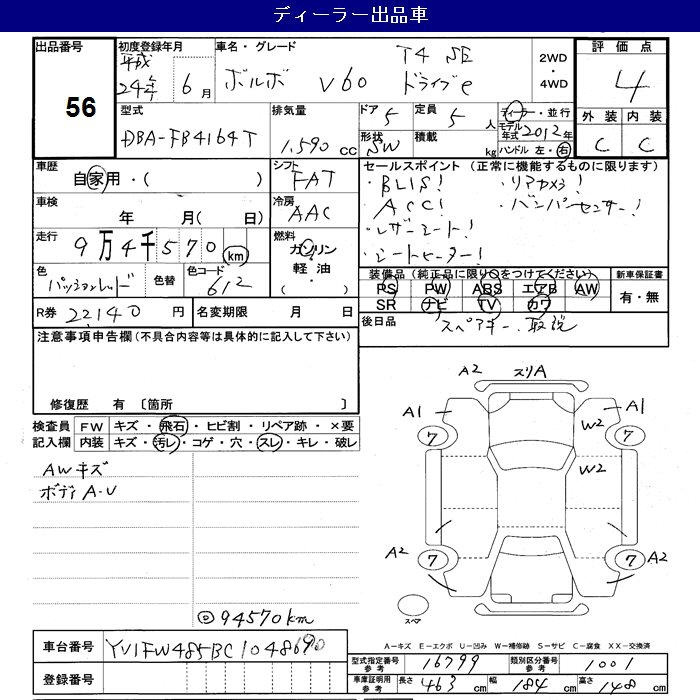 ディーラー出品車
出品番号 56
初度登録年月 平成24年 6月
車名・グレード ボルボ V60 T4 SE ドライブe
2WD ・ 4WD
評価点 4
外装 C 内装 C
型式 DBA-FB4164T
排気量 1.590 cc
ドア 5 定員 5 人
形状 SW 積載 kg
ディーラー・並行
モデル年式 2012年
ハンドル 左・右
車歴 自家用・( )
シフト FAT
車検 年 月( 日)
冷房 AAC
走行 9万4千570 km
燃料 ガソリン 軽油 ・( )
色 パッションレッド 色替 色コード 612
R券 22140円 名変期限 月 日
セールスポイント (正常に機能するものに限ります)
・BLIS! ・リアカメラ!
・ACC! ・バンパーセンサー!
・レザーシート!
・シートヒーター!
装備品(純正品に限り〇をつけてください) 新車保証書
PS PW ABS エアB AW 有・無
SR ナビ TV カワ
後日品 スペアキー. 取説
注意事項申告欄(不具合内容等は具体的に記入して下さい)
修復歴 有 〔箇所 〕
検査員 FW キズ・飛石・ヒビ割・リペア跡・×要
記入欄 内装 キズ・汚レ・コゲ・穴・スレ・キレ・破レ
AWキズ
ボディA-U
◎94570km
A2 スリA
A1 A1
7 W2 7
W2
A2 7 7 A2
スペア
A-キズ E-エクボ U-凹み W-補修跡 S-サビ C-腐食 XX-交換済
車台番号 YV1FW485BC1048690
登録番号
型式指定番号 参考 16799 類別区分番号 参考 1001
車庫証明用 参考 長さ 463 cm 幅 184 cm 高さ 148 cm